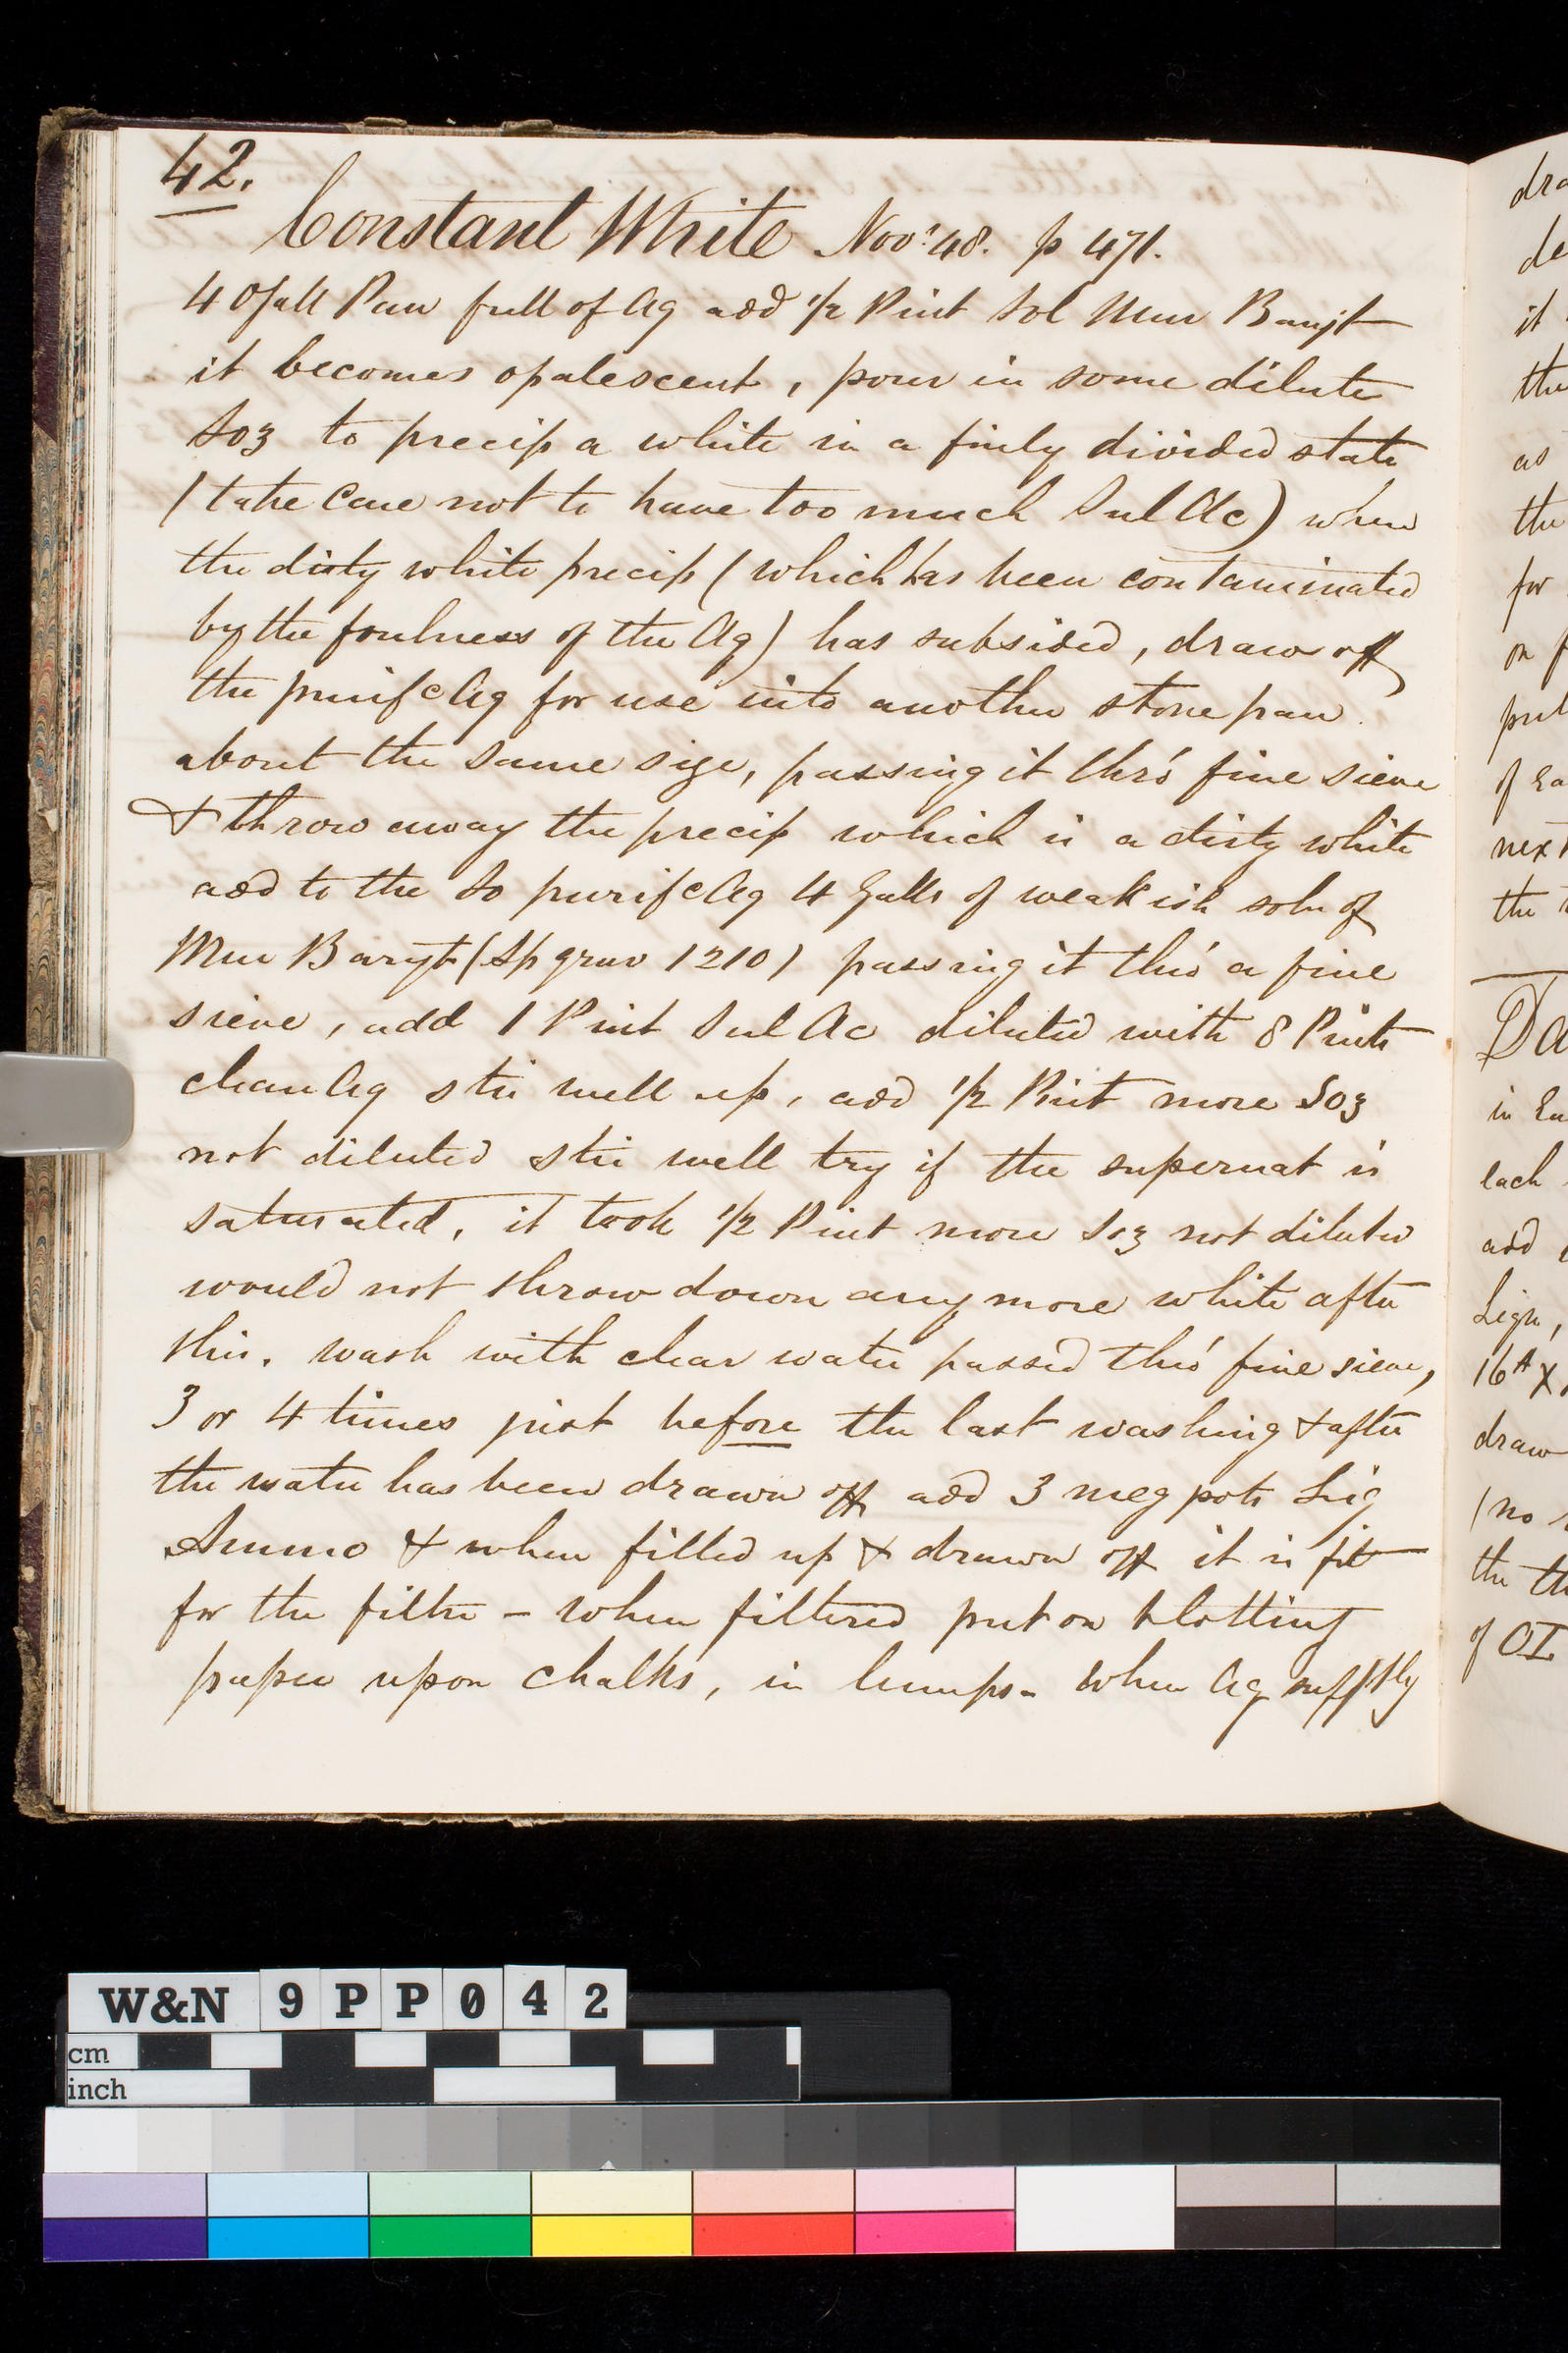 42.
Constant White Novr 48. p 471.
40 Gall Pan full of Aq add 1/2 Pint Sol Mur Baryt
it becomes opalescent, pour in some dilute
So3 to precip a white in a finely divided state
(take care not to have too much Sul Ac) when
the dirty white precip (which has been contaminated
by the foulness of the Aq) has subsided, draw off
the purifd Aq for use into another stone pan
about the same size, passing it thro' fine sieve
& throw away the precip which is a dirty white
add to the so purifd Aq 4 Galls of weakish soln of
Mur Baryt (Sp grav 1210) passing it thro' a fine
sieve, add 1 Pint Sul Ac diluted with 8 Pints
clean Aq stir well up, add 1/2 Pint more So3
not diluted stir well try if the supernat is
saturated, it took 1/2 Pint more So3 not diluted
would not throw down any more white after
this. wash with clear water passed thro' fine sieve,
3 or 4 times just before the last washing & after
the water has been drawn off add 3 meg pots Liq
Ammo & when filled up & drawn off it is fit
for the filter - when filtered put on blotting
paper upon chalks, in lumps - when Aq suffly
dra
de
it
the
as
the
for
on f
put
of Ea
next
the
Da
in Ea
each
add
Liqn,
16A X
draw
(no
the th
of OI
W&N 9PP042
cm
inch